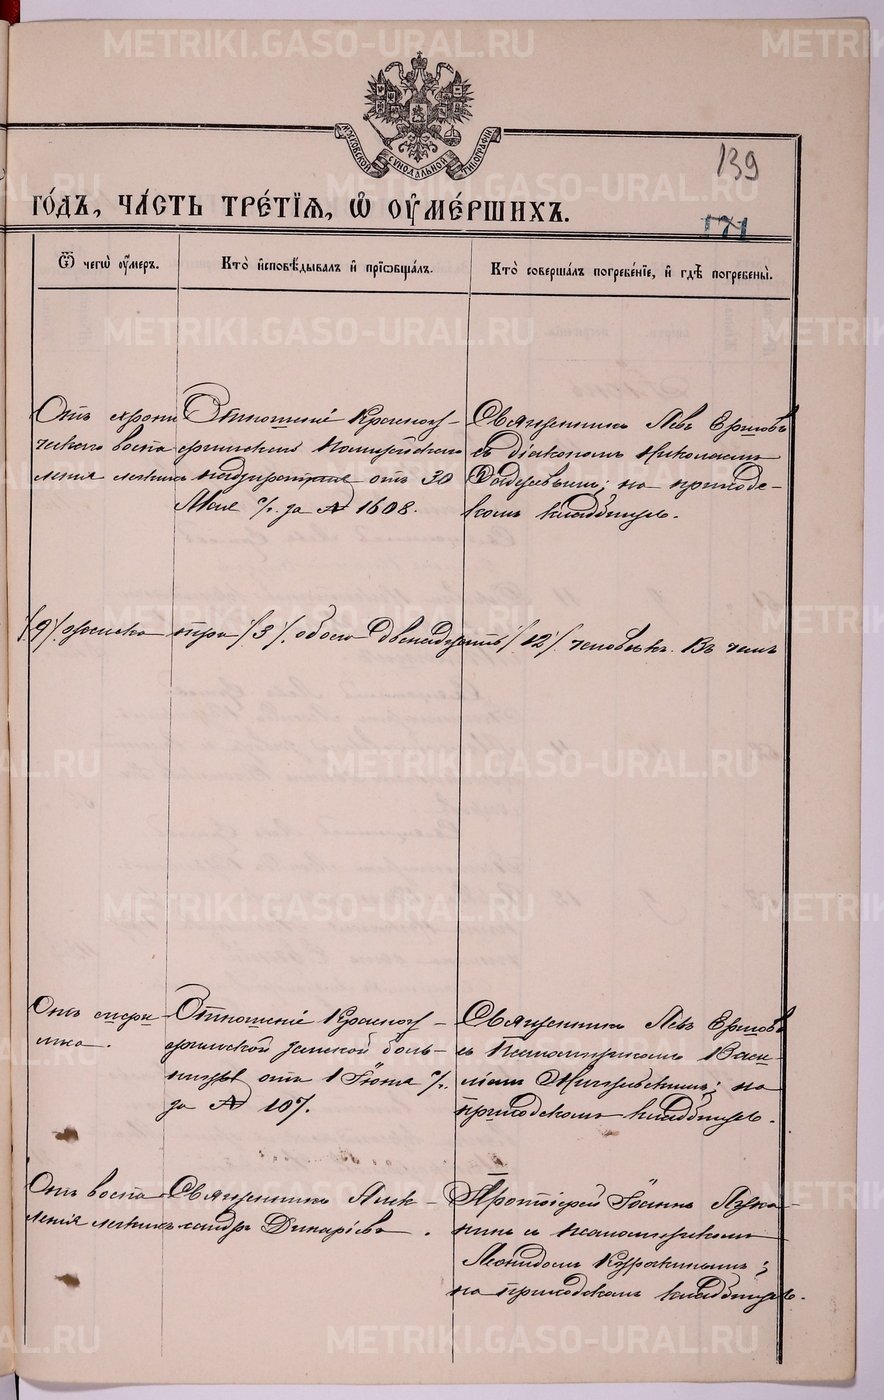 МОСКОВСКОЙ СѴНОДАЛЬНОЙ ТИПОГРАФІИ
139
ГО́ДЪ, ЧА́СТЬ ТРЕ́ТІѦ, Ѡ҆ ОУ҆МЕ́РШИХЪ.
171
Ѿ чегѡ̀ оу҆́меръ.
Кто̀ и҆сповѣ́дывалъ и҆ прїѡбща́лъ.
Кто̀ соверша́лъ погребе́нїе, и҆ гдѣ̀ погребены̀.
Отъ хрони
ческаго воспа
ленія легкихъ
Отношеніе Красноу-
фимскаго Полицейскаго
надзирателя отъ 30
Мая с/г. за № 1608.
Священникъ Левъ Ершовъ
съ діакономъ Николаемъ
на приходс-
комъ кладбищѣ.
/9/. женска три /3/. обоего двенадцать /12/. человѣкъ. Въ чемъ
Отношеніе Красноу-
фимской земской боль-
ницы отъ 1 Іюня с/г.
за № 107.
Священникъ Левъ Ершовъ
съ псаломщикомъ Васи-
ліемъ на
приходскомъ кладбищѣ.
Отъ воспа
ленія легкихъ
Священникъ Алек-
сандръ
Протоіерей Іоаннъ Лука-
нинъ съ псаломщикомъ
Леонидомъ
на приходскомъ кладбищѣ.
METRIKI.GASO-URAL.RU